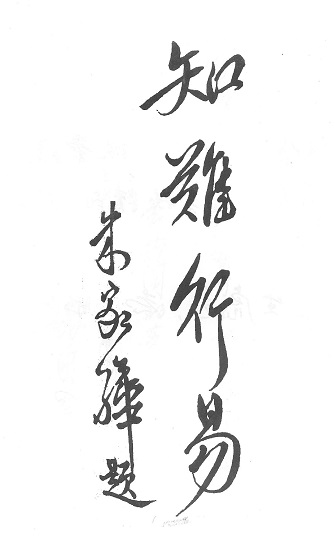 知難行易
朱家驊題